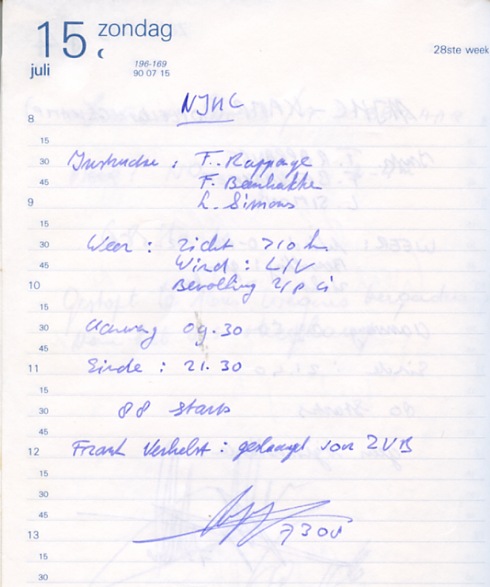 15 zondag
juli
196-169
90 07 15
28ste week
NJHC
8
15
30 Instructie : F. Rappage
45 F. Beenhakker
9 L. Simons
15
30 Weer : zicht >10 km
45 Wind : L/V
10 Bevolking ci
15
30 Aanvang 09.30
45
11 Einde : 21.30
15
30 88 starts
45
12 Frank Verhelst : geslaagd voor ZVB
15
30
45
13
30